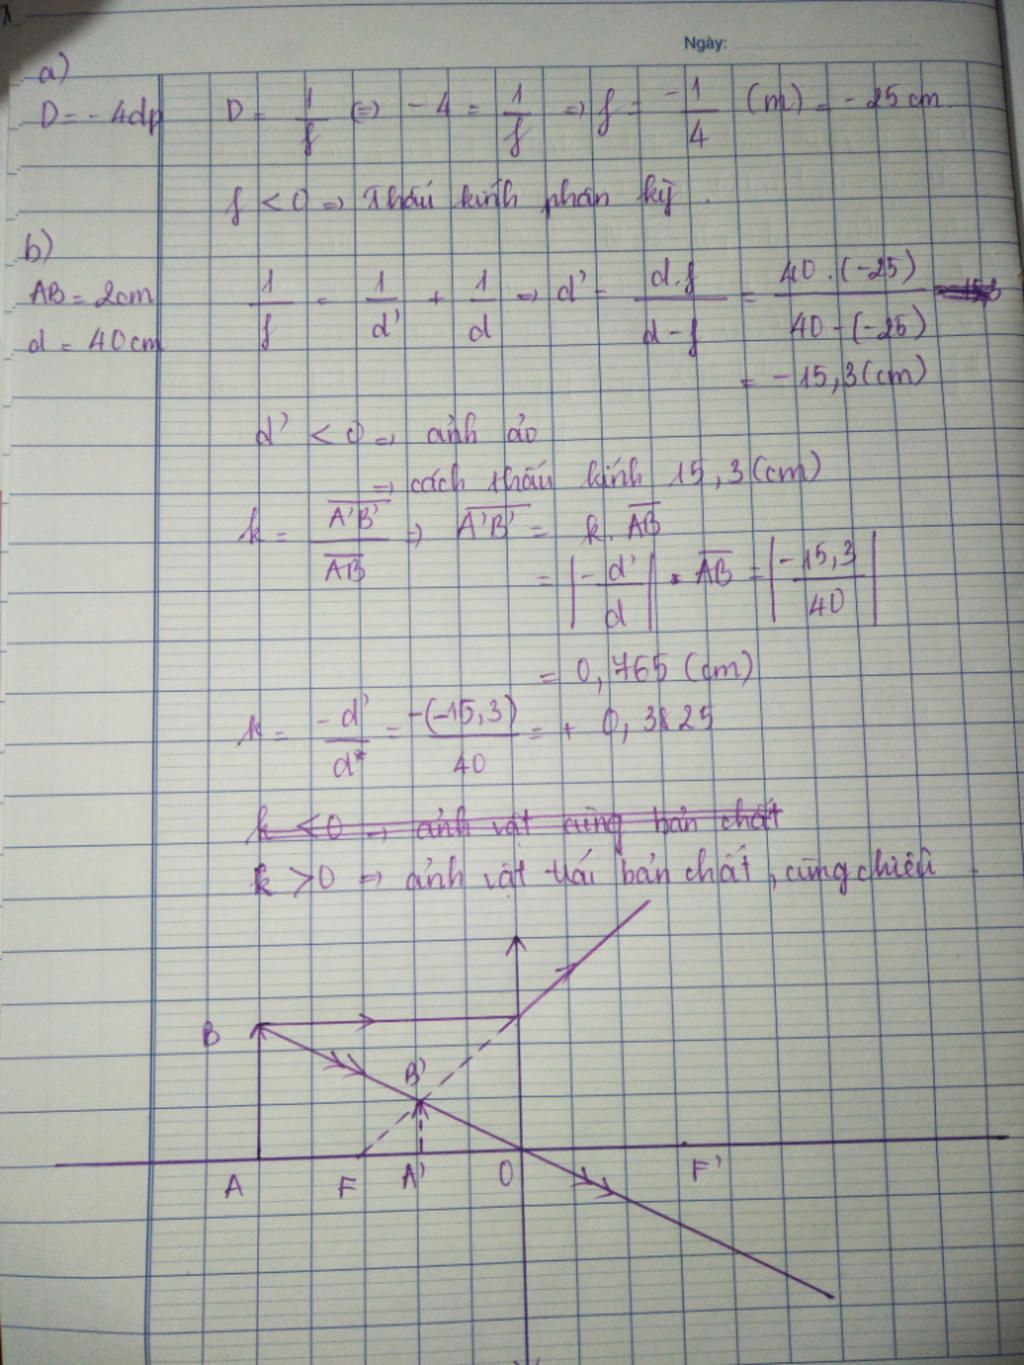 Ngày:
a)
D = - 4dp D = 1/f (=) - 4 = 1/f => f = -1/4 (m) = - 25 cm.
f < 0 => Thấu kính phân kỳ.
b)
AB = 2cm
d = 40cm
1/f = 1/d' + 1/d => d' = d.f/d-f = 40.(-25)/40-(-25)
= - 15,3(cm)
d' < 0 => ảnh ảo
=> cách thấu kính 15,3(cm)
k = A'B'/AB => A'B' = k. AB
= |-d'/d| . AB = |-15,3/40|
= 0,765 (cm)
k = -d'/d = -(-15,3)/40 = + 0,3825
k < 0 => ảnh vật cùng bản chất
k > 0 => ảnh vật trái bản chất, cùng chiều.
B
B'
A F A' O F'